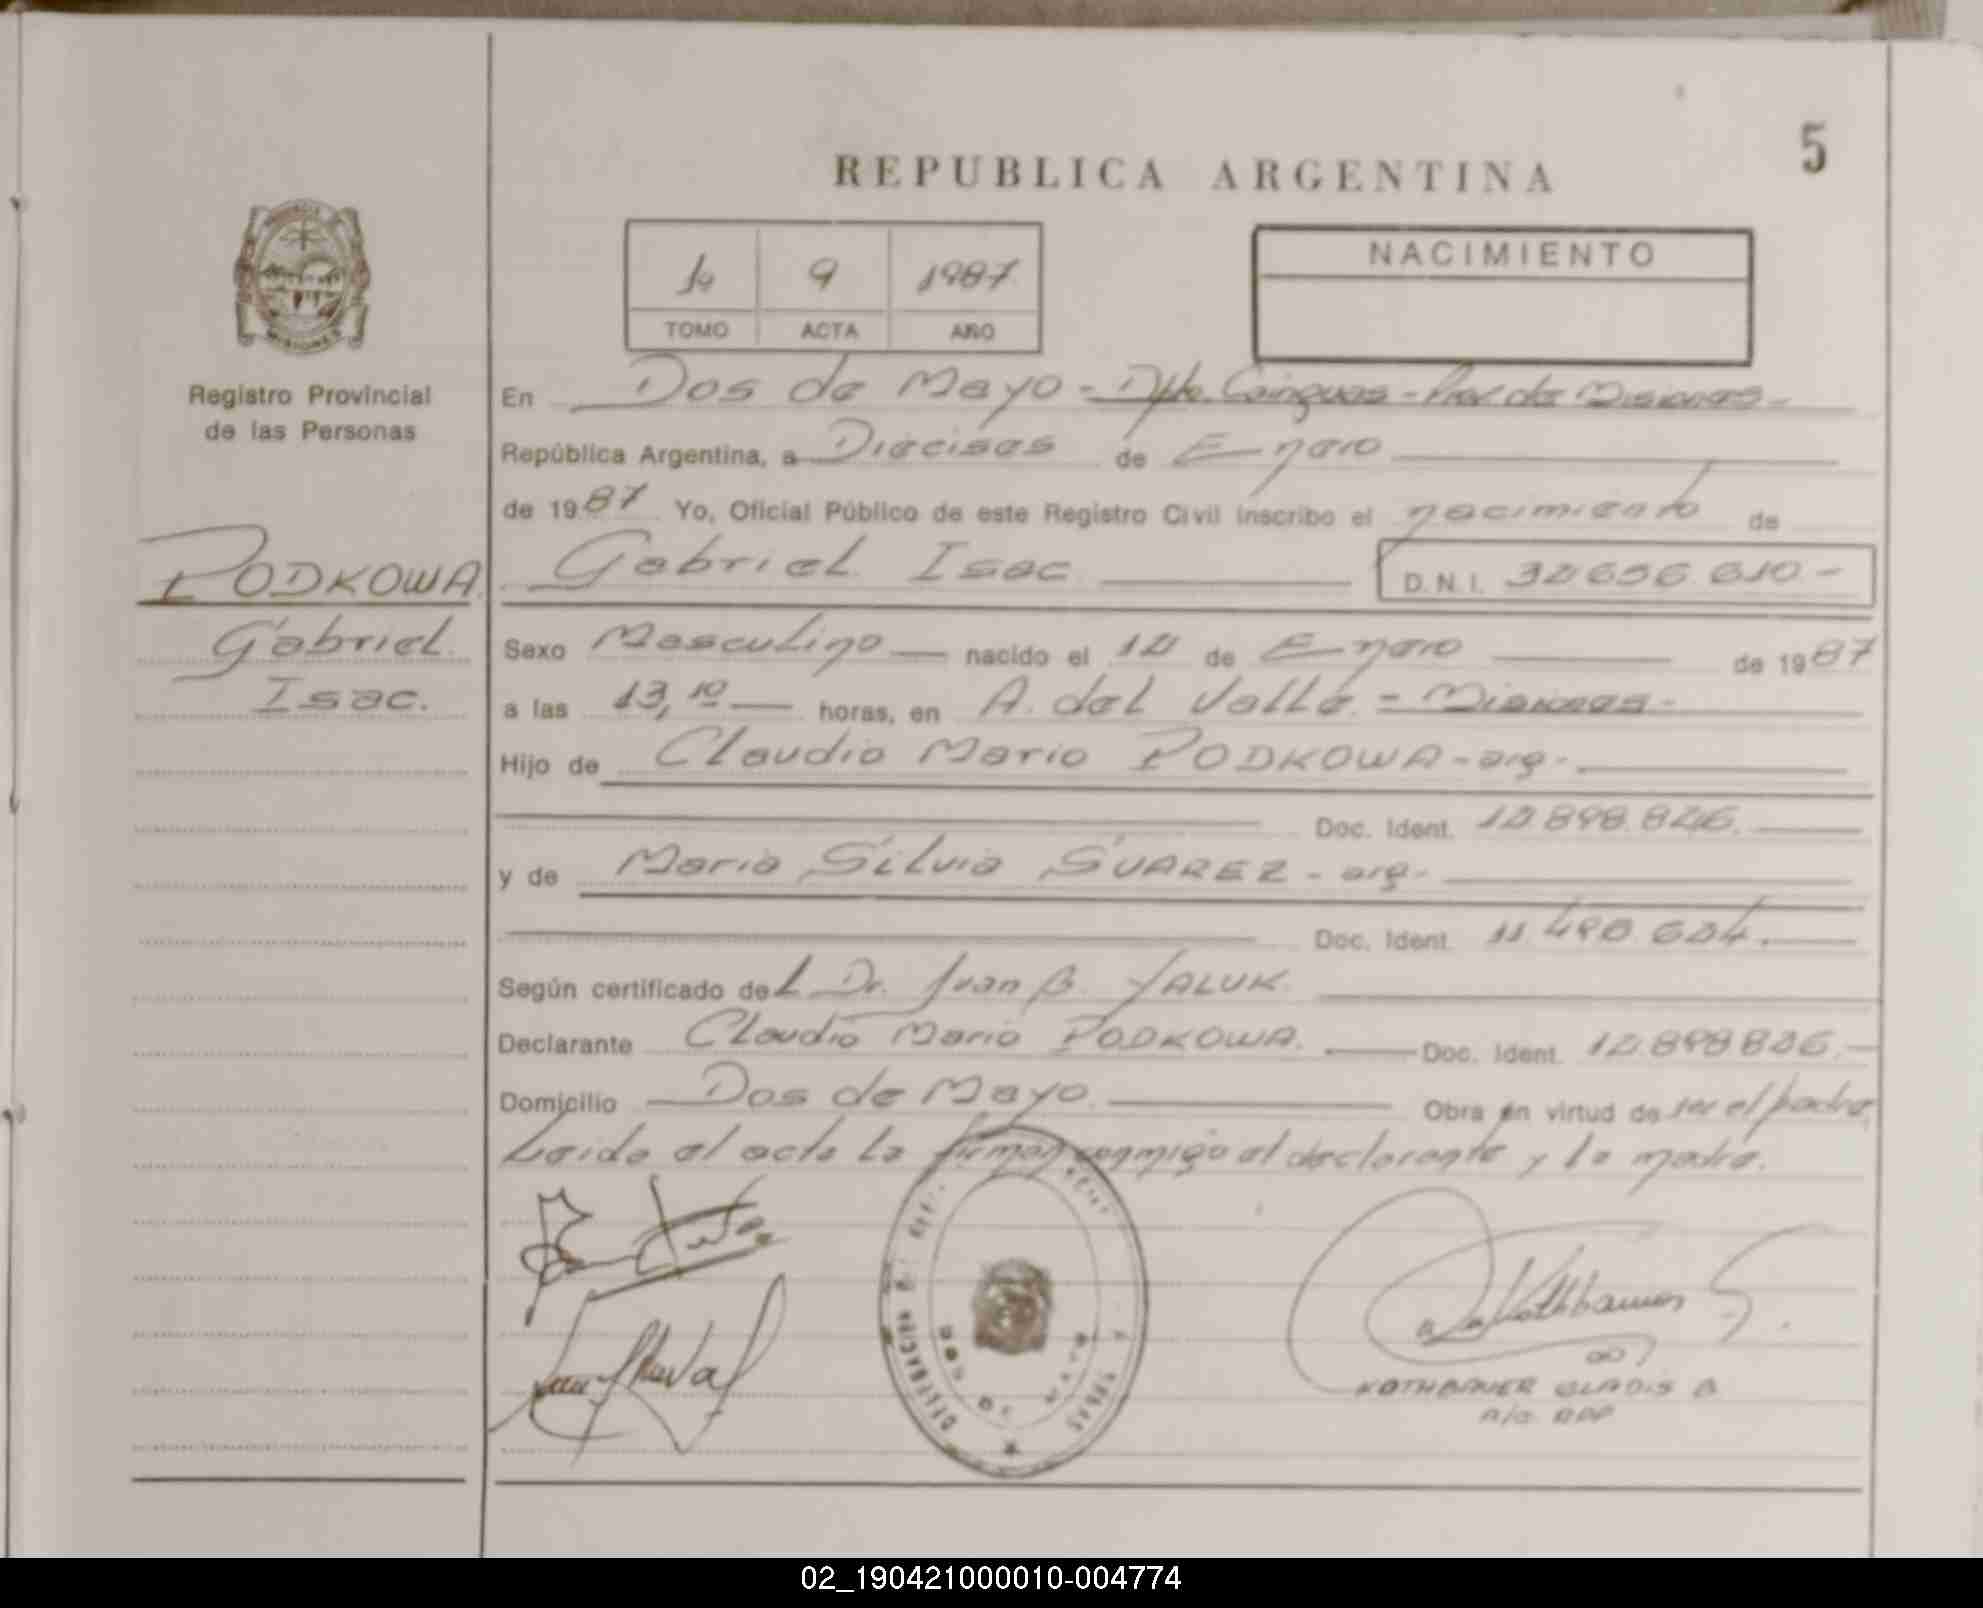 5
REPUBLICA ARGENTINA
1º 9 1987
TOMO ACTA AÑO
NACIMIENTO
MISIONES
Registro Provincial
de las Personas
PODKOWA
Gabriel
Isac.
En Dos de Mayo - Dpto. Cainguas - Prov. de Misiones -
República Argentina, a Dieciseis de Enero
de 1987 Yo, Oficial Público de este Registro Civil inscribo el nacimiento de
Gabriel Isac D.N.I.
Sexo Masculino nacido el de Enero de 1987
a las 13,10 horas, en A. del Valle - Misiones -
Hijo de Claudio Mario PODKOWA - arg.
Doc. Ident.
y de Maria Silvia SUAREZ - arg.
Doc. Ident.
Según certificado del Dr. Juan B. YALUK
Declarante Claudio Mario PODKOWA. Doc. Ident.
Domicilio Dos de Mayo. Obra en virtud de ser el padre,
Leido el acta la firman conmigo el declarante y la madre.
DOS DE MAYO
KOTHBAUER GLADIS B
A/C RPP
02_190421000010-004774